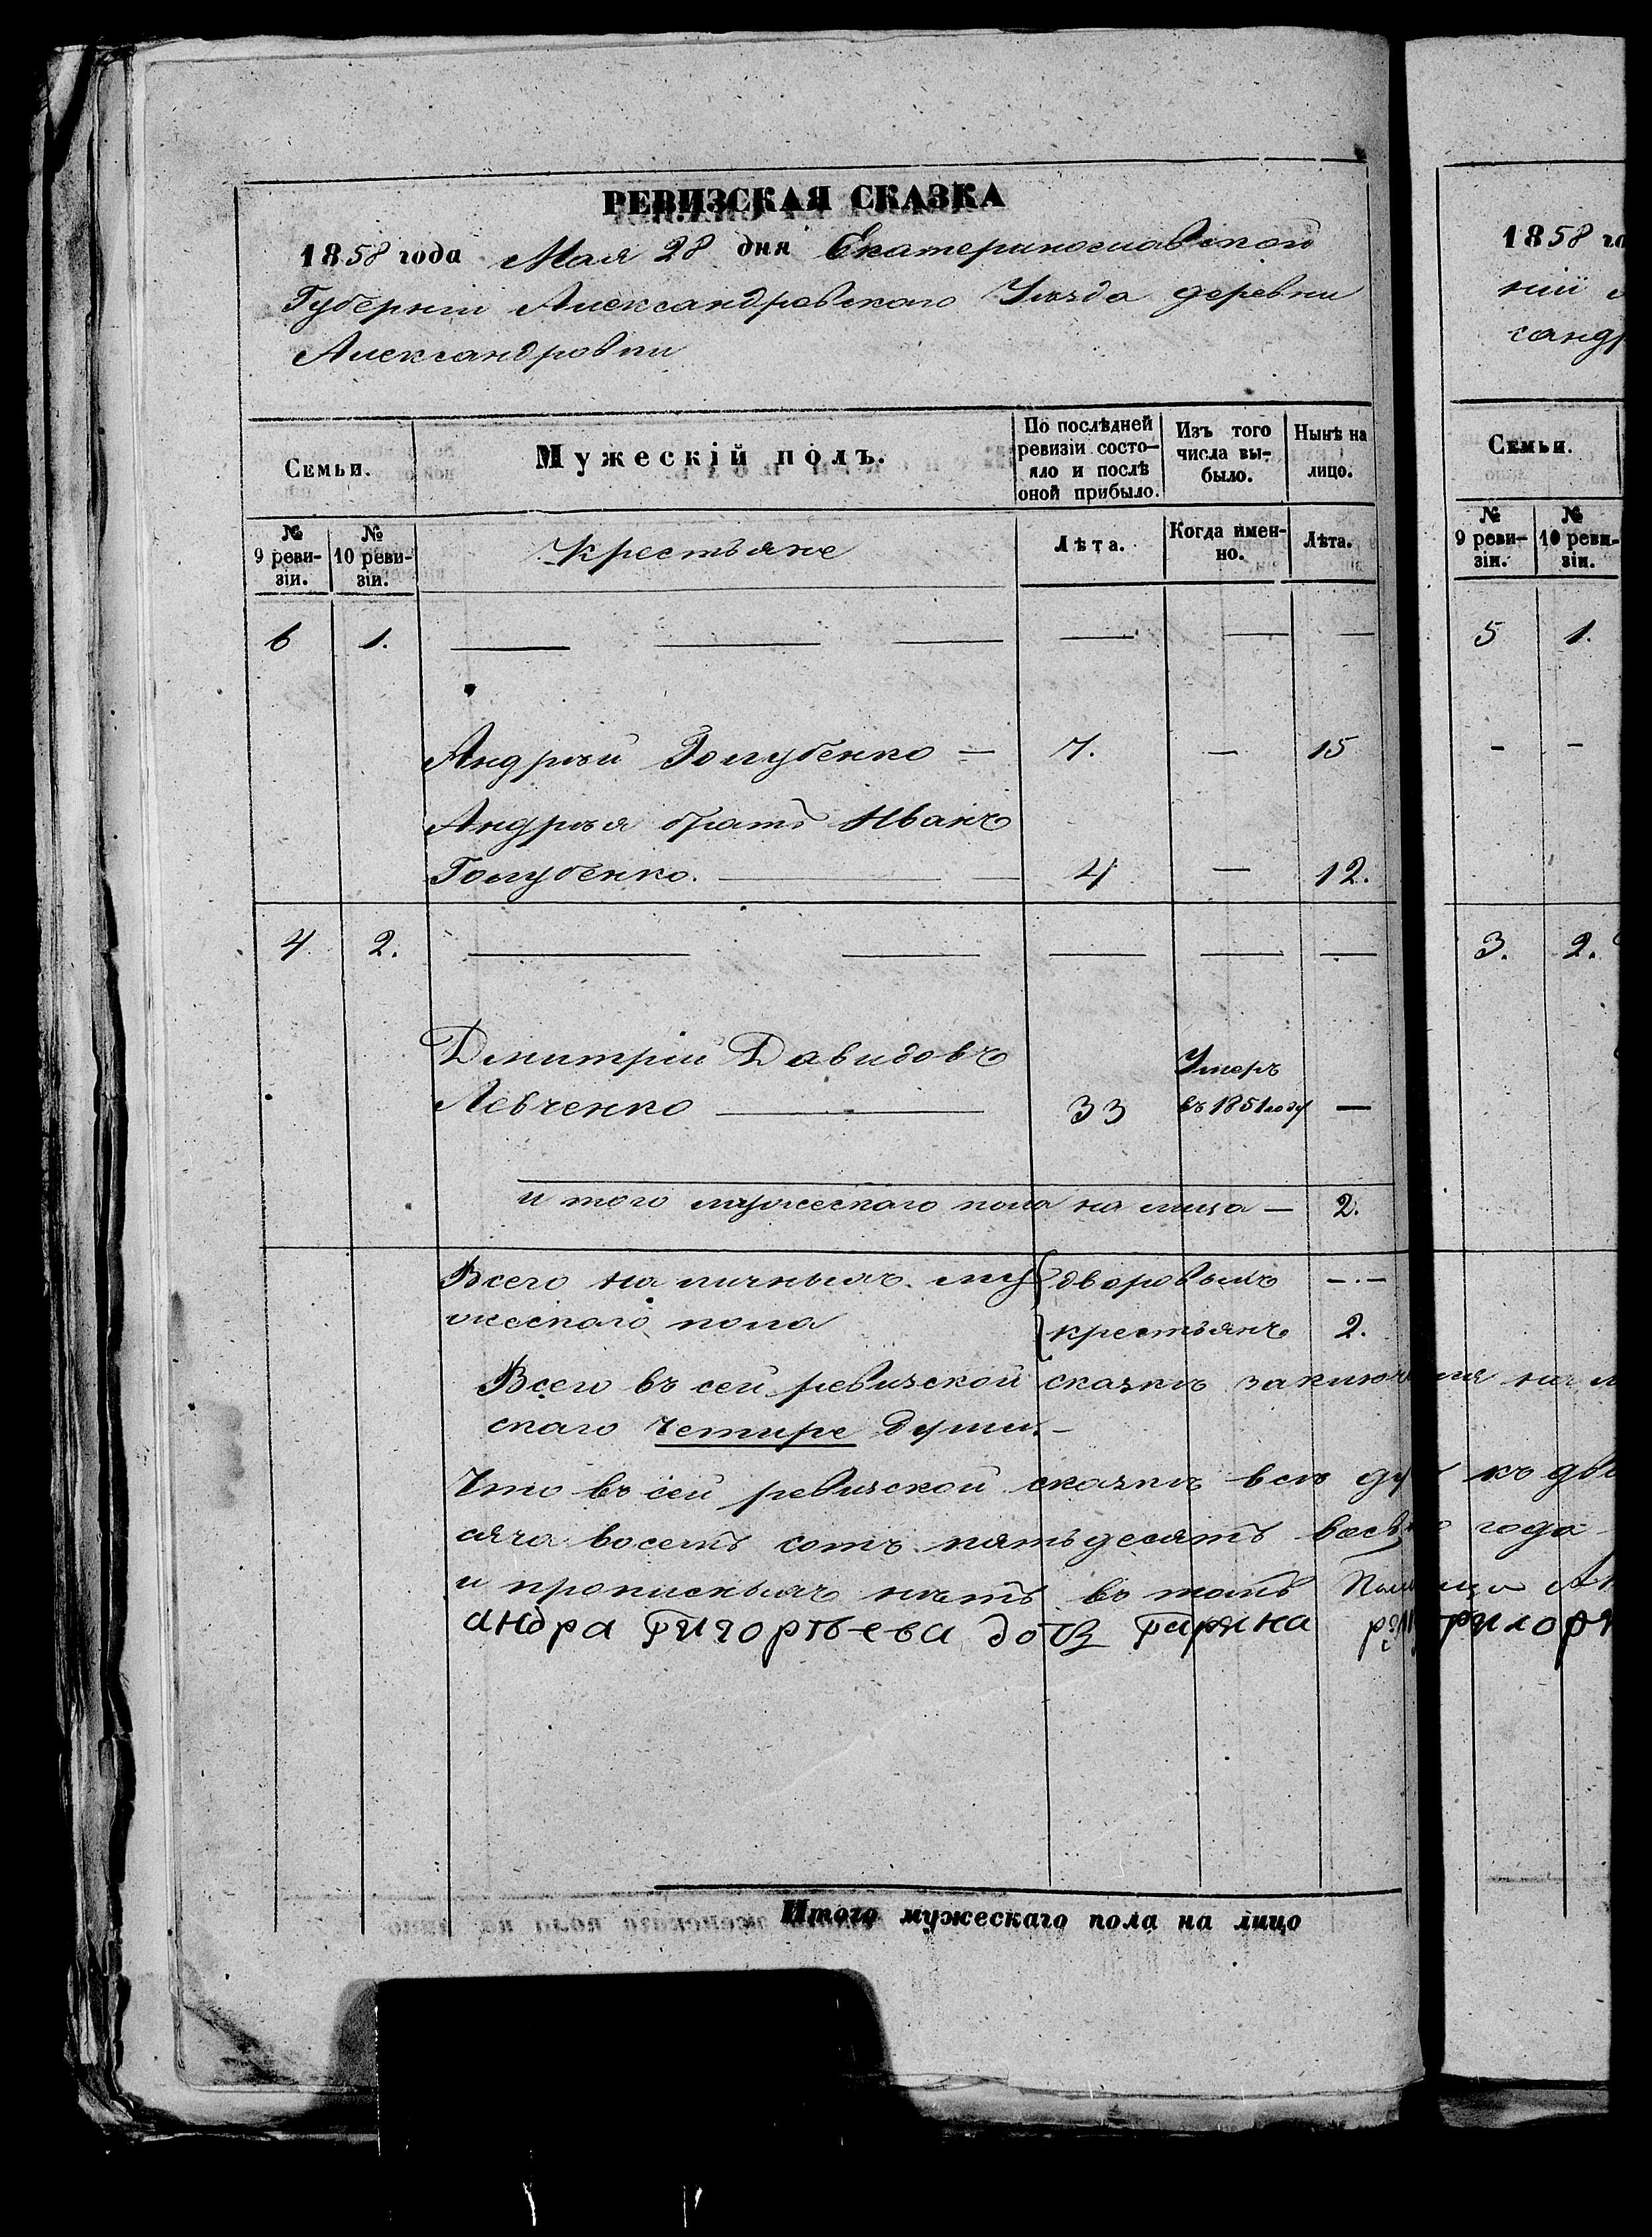 РЕВИЗСКАЯ СКАЗКА
1858 года Мая 28 дня Екатеринославской
Губерніи Александровскаго Уѣзда деревни
Александровки
Семьи.
Мужескій полъ.
По послѣдней ревизіи состо-яло и послѣ оной прибыло.
Изъ того числа вы-было.
Нынѣ на лицо.
№ 9 реви-зіи.
№ 10 реви-зіи.
Крестьяне
Лѣта.
Когда имен-но.
Лѣта.
6 1. — — — — — —
Андрѣй Голубенко — 7. — 15
Андрѣя братъ Иванъ
Голубенко. — 4 — 12.
4 2. — — — — —
Дмитрій Давидовъ
Умеръ
Левченко — 33 въ 1851 году —
и того мужескаго пола на лицо — 2.
Всего на личныхъ му дворовыхъ — . —
жескаго пола крестьянъ 2.
Всего въ сей ревизской сказкѣ
скаго четире души. —
Что въ сей ревизской сказкѣ всѣ
сяча восемъ сотъ пятьдесятъ
и прописныхъ нѣтъ въ томъ
андра
Итого мужескаго пола на лицо
1858 го
ніи
санд
Семьи.
№ 9 реви-зіи.
№ 10 реви-зіи.
5 1.
- -
3. 2.
къ
года